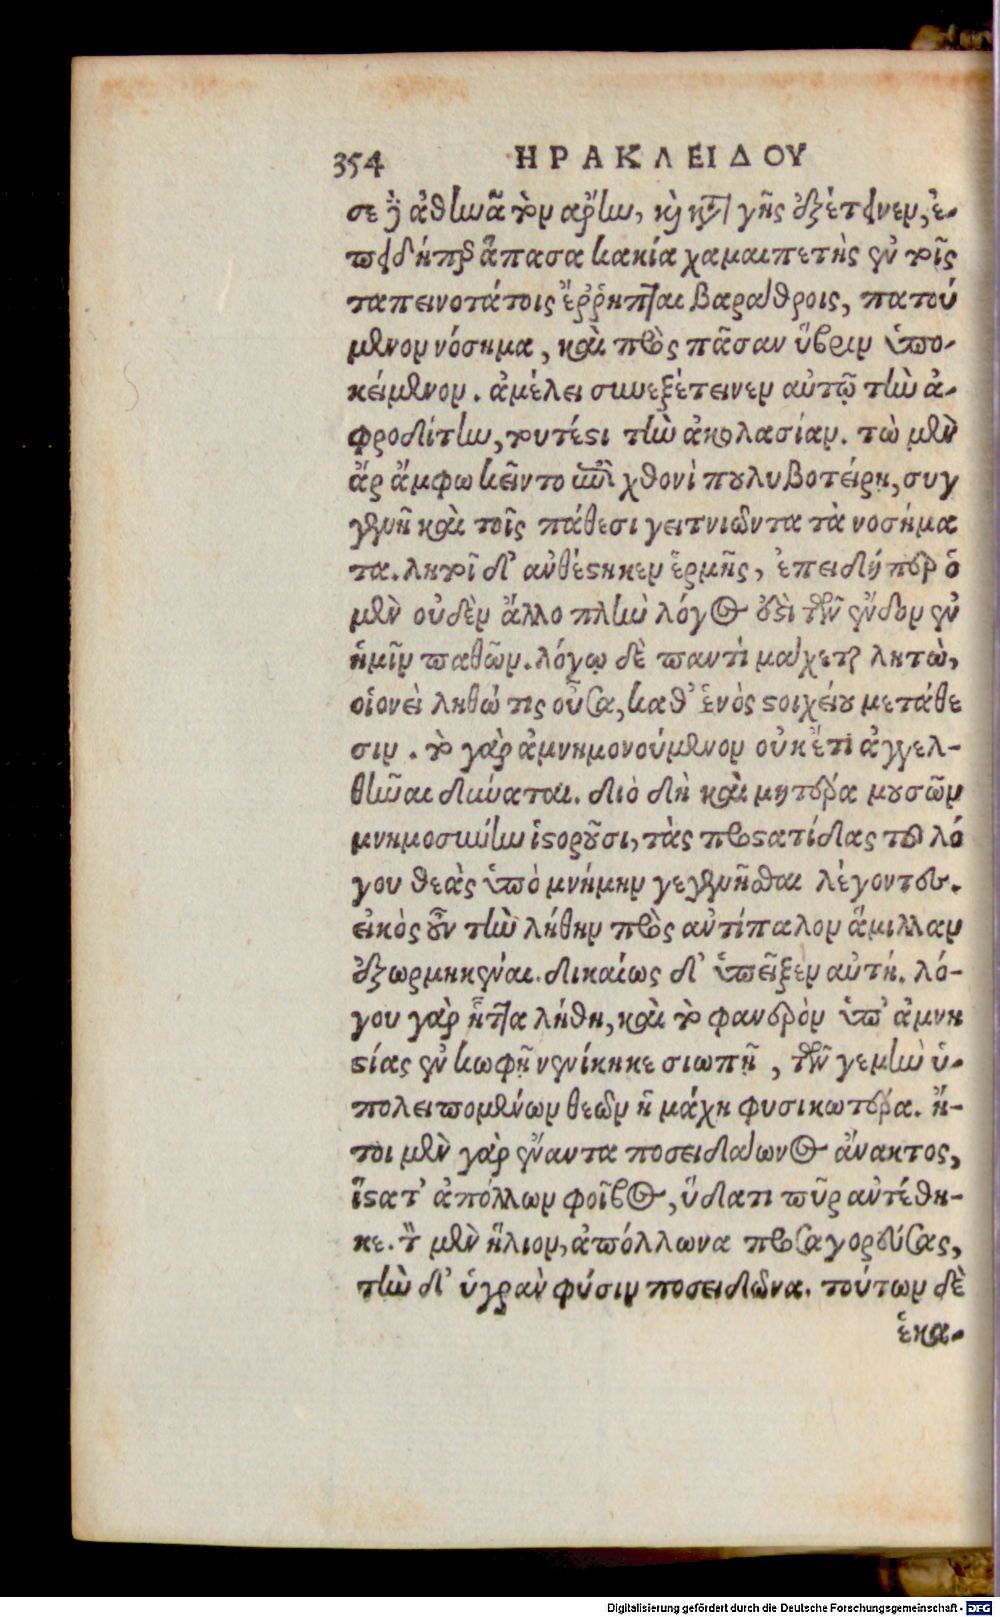 354 ΗΡΑΚΛΕΙΔΟΥ
σε γὰρ ἀθηνᾶ τὸν ἄρην, καὶ κατὰ γῆς ἐξέτεινεν, ἐ-
πειδήπερ ἅπασα κακία χαμαιπετὴς ἐν τοῖς
ταπεινοτάτοις ἔῤῥιπται βαράθροις, πατού
μενον νόσημα, καὶ πρὸς πᾶσαν ὕβριν ὑπο-
κείμενον. ἀμέλει συνεξέτεινεν αὐτῷ τὴν ἀ-
φροδίτην, τουτέστι τὴν ἀκολασίαν. τὼ μὲν
ἄρ ἄμφω κεῖντο ἐπὶ χθονὶ πουλυβοτείρῃ, συγ
γενῆ καὶ τοῖς πάθεσι γειτνιῶντα τὰ νοσήμα
τα. λητοῖ δ' ἀνθέστηκεν ἑρμῆς, ἐπειδήπερ ὁ
μὲν οὐδὲν ἄλλο πλὴν λόγος ἐστὶ τῶν ἔνδον ἐν
ἡμῖν παθῶν. λόγῳ δὲ παντὶ μάχεται λητὼ,
οἱονεὶ ληθώ τις οὖσα, καθ' ἑνὸς στοιχείου μετάθε
σιν. τὸ γὰρ ἀμνημονούμενον οὐκ ἔτι ἀγγελ-
θῆναι δύναται. διὸ δὴ καὶ μητέρα μουσῶν
μνημοσύνην ἱστοροῦσι, τὰς προστατίδας τοῦ λό
γου θεὰς ὑπὸ μνήμην γεγενῆσθαι λέγοντες.
εἰκὸς οὖν τὴν λήθην πρὸς ἀντίπαλον ἅμιλλαν
ἐξωρμηκέναι. δικαίως δ' ὑπεῖξεν αὐτῇ. λό-
γου γὰρ ἧττα λήθη, καὶ τὸ φανερὸν ὑπ' ἀμνη
στίας ἐν κωφῇ νενίκηκε σιωπῇ, τῶν γεμὴν ὑ-
πολειπομένων θεῶν ἡ μάχη φυσικωτέρα. ἤ-
τοι μὲν γὰρ ἔναντα ποσειδάωνος ἄνακτος,
ἵστατ' ἀπόλλων φοῖβος, ὕδατι πῦρ ἀντέθη-
κε. τὸν μὲν ἥλιον, ἀπόλλωνα προσαγορεύσας,
τὴν δ' ὑγρὰν φύσιν ποσειδῶνα. τούτων δὲ
ἑκα-
Digitalisierung gefördert durch die Deutsche Forschungsgemeinschaft - DFG